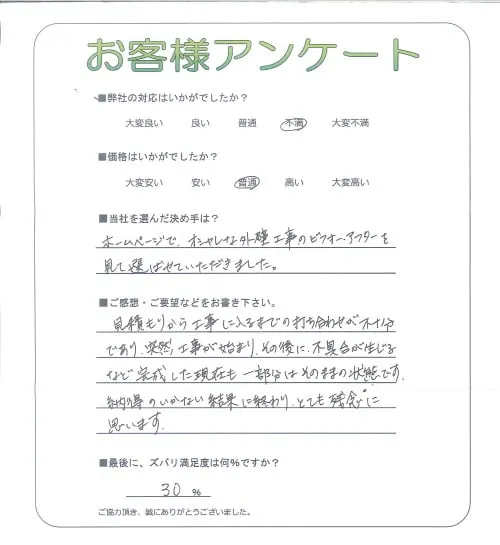 お客様アンケート
■弊社の対応はいかがでしたか？
大変良い 良い 普通 不満 大変不満
■価格はいかがでしたか？
大変安い 安い 普通 高い 大変高い
■当社を選んだ決め手は？
ホームページで、オシャレな外壁工事のビフォー・アフターを
見て選ばせていただきました。
■ご感想・ご要望などをお書き下さい。
見積もりから工事に入るまでの打ち合わせが不十分
であり、突然、工事が始まり、その後に、不具合が生じる
など完成した現在も一部分はそのままの状態です。
納得のいかない結果に終わり、とても残念に
思います。
■最後に、ズバリ満足度は何％ですか？
30 ％
ご協力頂き、誠にありがとうございました。